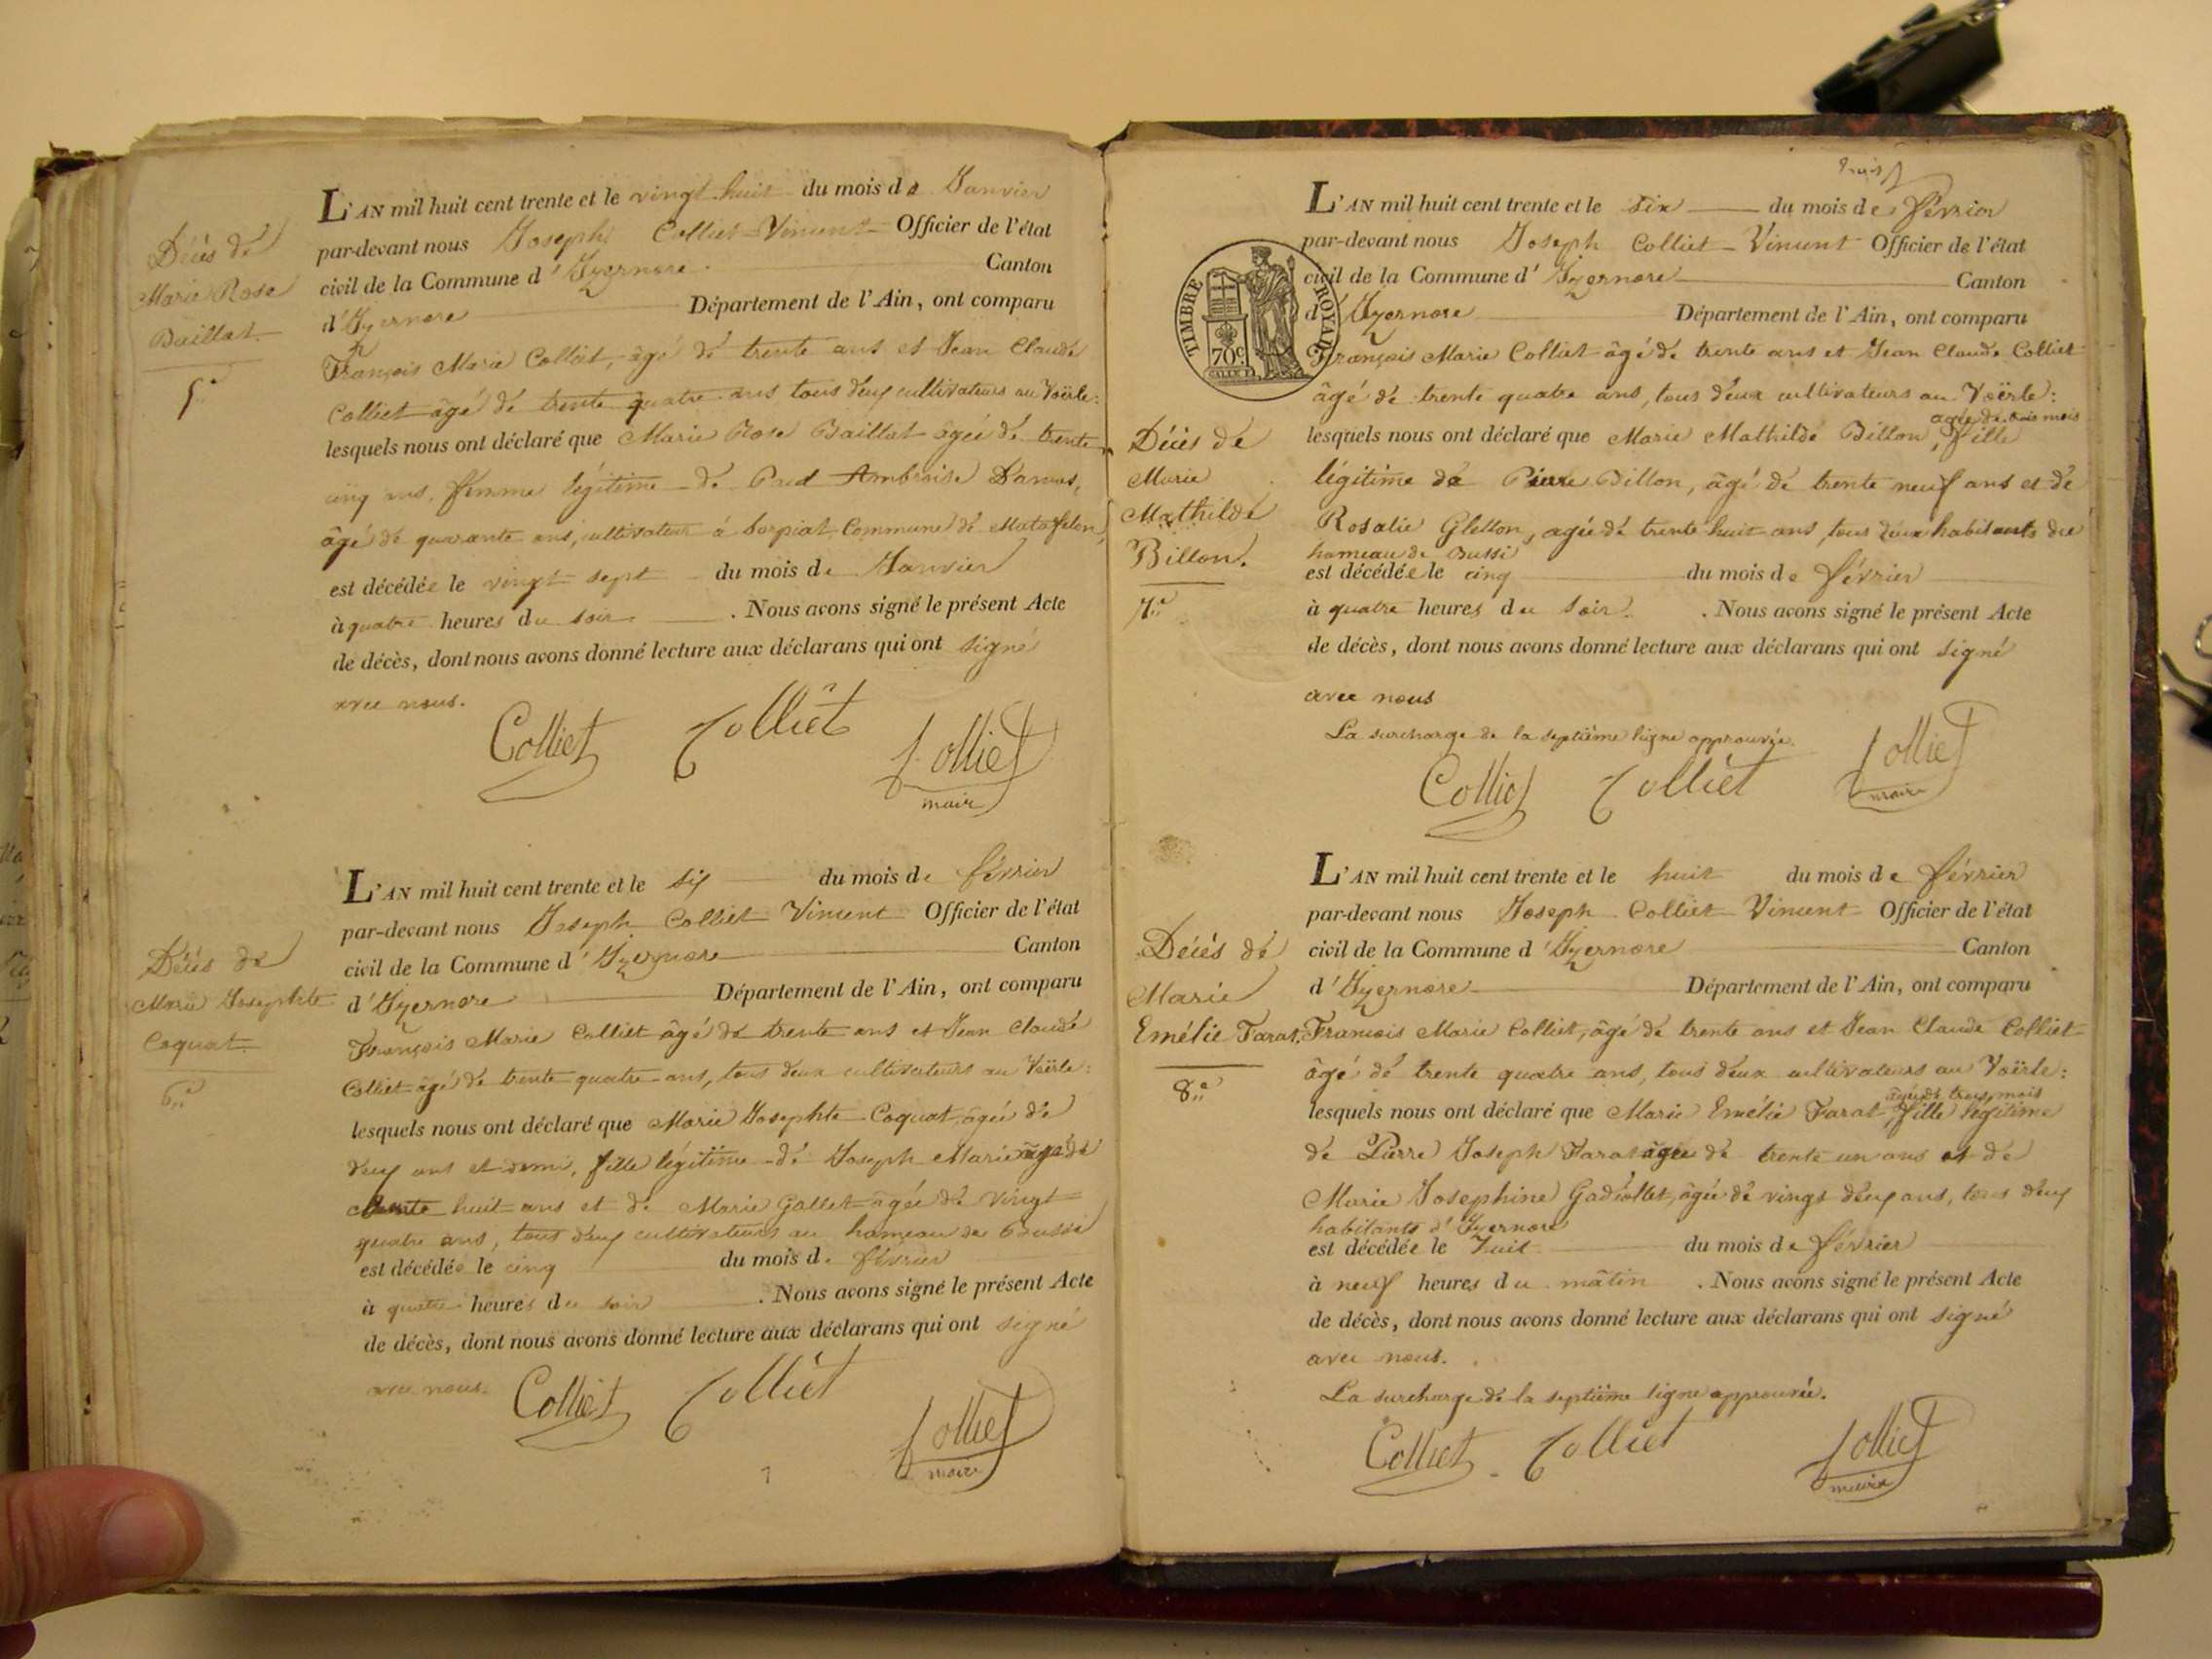 Décès de
Marie Rose
Baillat.
5.e
L'AN mil huit cent trente et le vingt huit du mois de Janvier
par-devant nous Joseph Colliet Vincent Officier de l'état
civil de la Commune d'Izernore Canton
d'Izernore Département de l'Ain, ont comparu
François Marie Colliet, âgé de trente ans et Jean Claude
Colliet âgé de trente quatre ans tous deux cultivateurs au Voërle:
lesquels nous ont déclaré que Marie Rose Baillat âgée de trente
cinq ans, femme légitime de Ambroise
âgé de quarante ans, cultivateur à Sorpiat Commune de Matafelon,
est décédée le vingt sept du mois de Janvier
à quatre heures du soir. Nous avons signé le présent Acte
de décès, dont nous avons donné lecture aux déclarans qui ont signé
avec nous.
Colliet Colliet Colliet
maire
Décès de
Marie Josephte
Coquat.
6.e
L'AN mil huit cent trente et le six du mois de février
par-devant nous Joseph Colliet Vincent Officier de l'état
civil de la Commune d'Izernore Canton
d'Izernore Département de l'Ain, ont comparu
François Marie Colliet âgé de trente ans et Jean Claude
Colliet âgé de trente quatre ans, tous deux cultivateurs au Voërle:
lesquels nous ont déclaré que Marie Josephte Coquat, âgée de
deux ans et demi, fille légitime de Joseph Marie âgé de
trente huit ans et de Marie Gallet âgée de vingt
quatre ans, tous deux cultivateurs au hameau de Bussi
est décédée le cinq du mois de février
à quatre heures du soir. Nous avons signé le présent Acte
de décès, dont nous avons donné lecture aux déclarans qui ont signé
avec nous.
Colliet Colliet Colliet
maire
TIMBRE ROYAL
70c
Décès de
Marie
Mathilde
Billon.
7.e
L'AN mil huit cent trente et le six du mois de février
par-devant nous Joseph Colliet Vincent Officier de l'état
civil de la Commune d'Izernore Canton
d'Izernore Département de l'Ain, ont comparu
François Marie Colliet âgé de trente ans et Jean Claude Colliet
âgé de trente quatre ans, tous deux cultivateurs au Voërle:
agée de trois mois
lesquels nous ont déclaré que Marie Mathilde Billon, fille
légitime de Pierre Billon, âgé de trente neuf ans et de
Rosalie Gletton, agée de trente huit ans, tous deux habitants du
hameau de Bussi
est décédée le cinq du mois de février
à quatre heures du soir. Nous avons signé le présent Acte
de décès, dont nous avons donné lecture aux déclarans qui ont signé
avec nous
La surcharge de la septième ligne approuvée.
Colliet Colliet Colliet
maire
Décès de
Marie
Emélie Farat.
8.e
L'AN mil huit cent trente et le huit du mois de février
par-devant nous Joseph Colliet Vincent Officier de l'état
civil de la Commune d'Izernore Canton
d'Izernore Département de l'Ain, ont comparu
François Marie Colliet, âgé de trente ans et Jean Claude Colliet
âgé de trente quatre ans, tous deux cultivateurs au Voërle:
âgée de trois mois
lesquels nous ont déclaré que Marie Emélie Farat, fille légitime
de Pierre Joseph Farat âgé de trente un ans et de
Marie Josephine Gadiollet, âgée de vingt deux ans, tous deux
habitants d'Izernore
est décédée le huit du mois de février
à neuf heures du mâtin. Nous avons signé le présent Acte
de décès, dont nous avons donné lecture aux déclarans qui ont signé
avec nous.
La surcharge de la septième ligne approuvée.
Colliet Colliet Colliet
maire